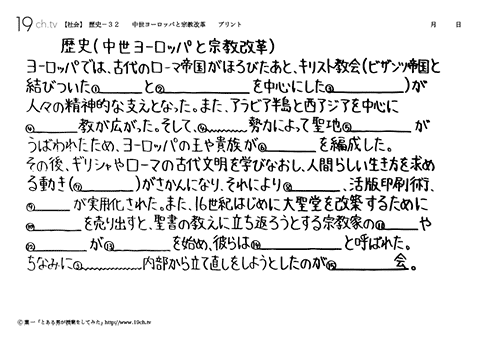 19ch.tv 【社会】 歴史－32 中世ヨーロッパと宗教改革 プリント 月 日
歴史(中世ヨーロッパと宗教改革)
ヨーロッパでは、古代のローマ帝国がほろびたあと、キリスト教会(ビザンツ帝国と
結びついた①______と②______を中心にした③______)が
人々の精神的な支えとなった。また、アラビア半島と西アジアを中心に
④______教が広がった。そして、⑤______勢力によって聖地⑥______が
うばわれたため、ヨーロッパの王や貴族が⑦______を編成した。
その後、ギリシャやローマの古代文明を学びなおし、人間らしい生き方を求め
る動き(⑧______)がさかんになり、それにより⑨______、活版印刷術、
______が実用化された。また、16世紀はじめに大聖堂を改築するために
______を売り出すと、聖書の教えに立ち返ろうとする宗教家の______や
______が______を始め、彼らは______と呼ばれた。
ちなみに______内部から立て直しをしようとしたのが______会。
© 葉一「とある男が授業をしてみた」http://www.19ch.tv